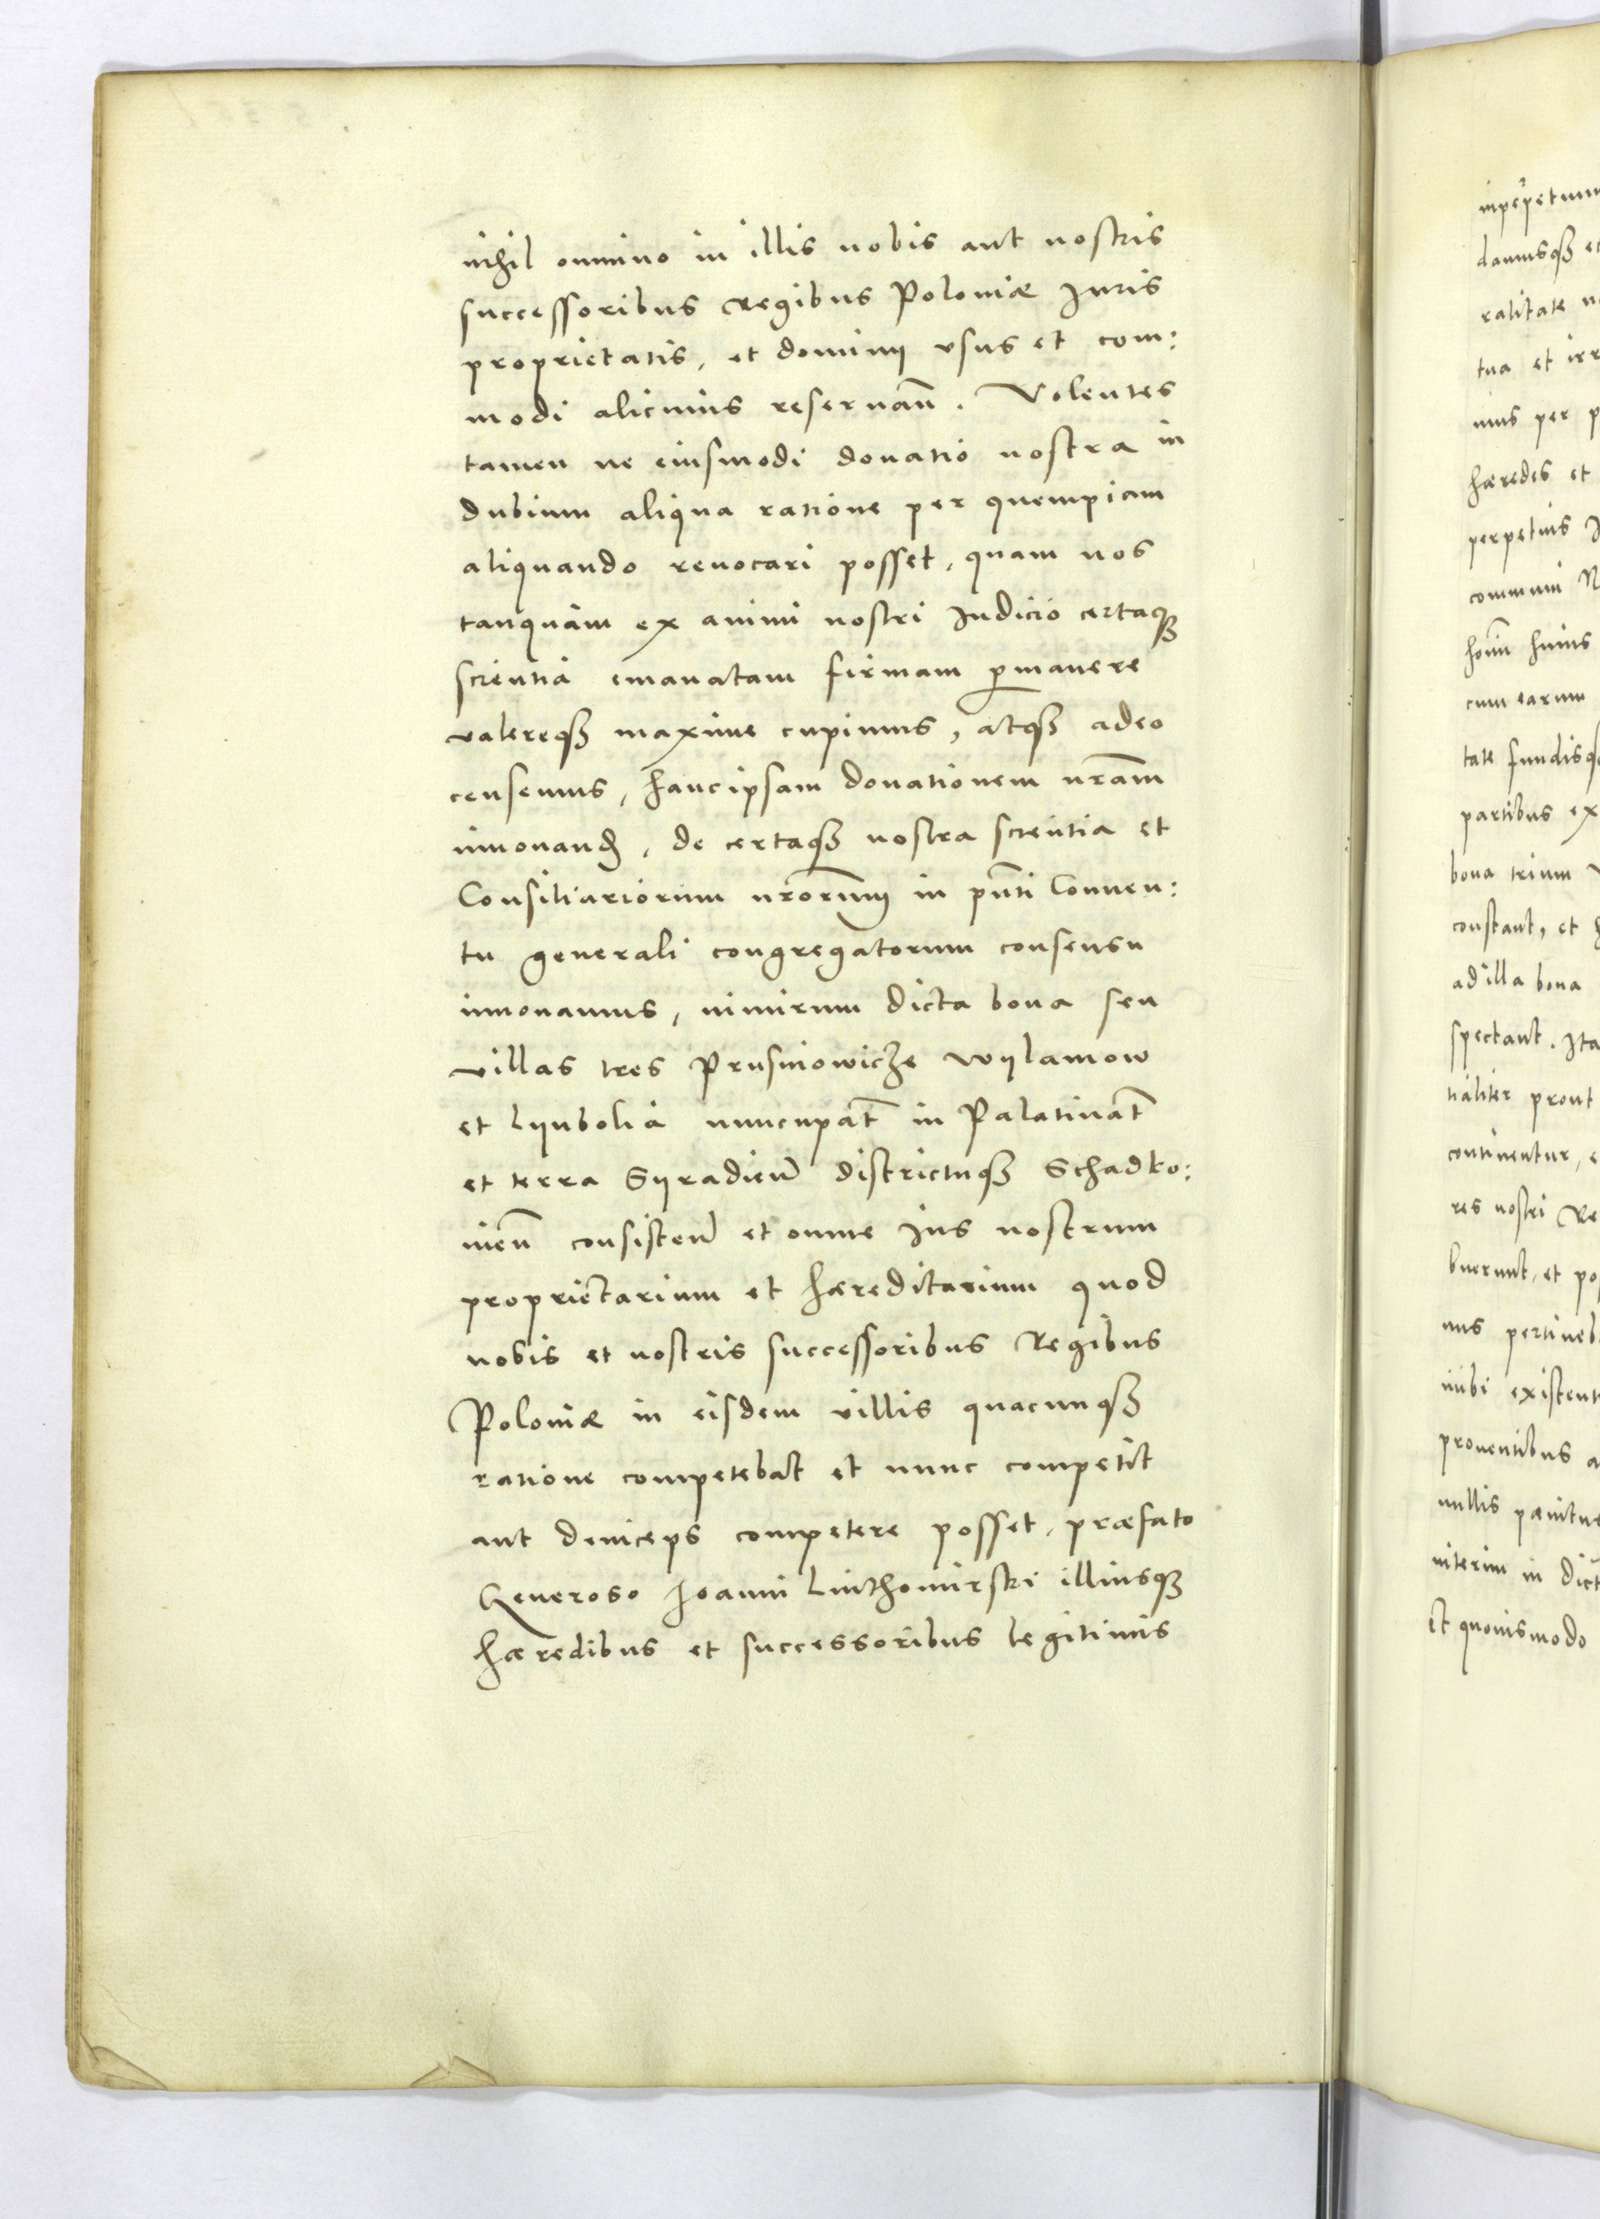 nihil omnino in illis nobis aut nostris
successoribus Regibus Poloniæ Juris
proprietatis, et dominij vsus et com:
modi alicuius reseruan̄. Volentes
tamen ne eiusmodi donatio nostra in
dubium aliqua ratione per quempiam
aliquando reuocari posset, quam nos
tanquam ex animi nostri Judicio certaqȝ
scientia emanatam firmam ꝑmanere
valereqȝ maxime cupimus, atqȝ adeo
censemus, hanc ipsam donationem nr̄am
innouand̄, de certaqȝ nostra scientia et
Consiliariorum nr̄orum in pn̄ti Conuen:
tu generali congregatorum consensu
innouamus, nimirum dicta bona seu
villas tres Prusinowicze Wijlamow
et Lijubolia nuncupat̄ in Palatinat̄
et terra Sijradien̄ districtuqȝ Schadko:
uien̄ consisten̄ et omne Jus nostrum
proprietarium et hæreditarium quod
nobis et nostris successoribus Regibus
Poloniæ in eisdem villis quacunqȝ
ratione competebat et nunc competit
aut deinceps competere posset, præfato
Generoso Joanni Linthomirski illiusqȝ
hæredibus et successoribus legitimis
inperpetuum
damusqȝ
ralitate
tua et
per
hæredes et
perpetuis
communi
huius
cum earum
tate fundisqȝ
partibus ex
bona trium
constant, et
ad illa bona
spectant. Ita
tialiter prout
continentur,
res nostri Re
buerunt, et
nus
inibi
prouentibus
nullis pænitus
interim in
Et quouismodo